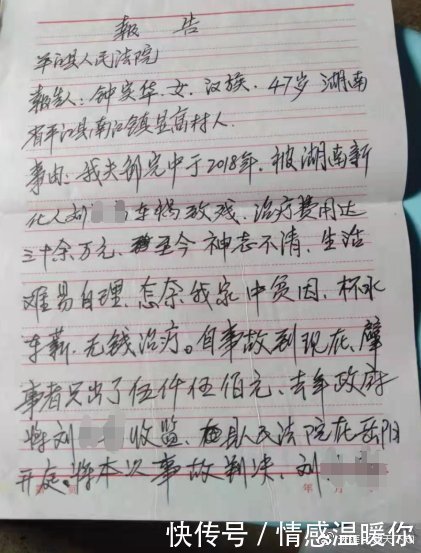 報告
平江县人民法院
報告人:钟实华.女.汉族.47岁 湖南
省平江县南江镇昱高村人.
事由:我夫郭完中于2018年.被湖南新
化人刘 车祸致残.治疗费用达
三十余万元.至今神志不清.生活
难易自理.怎奈我家中贫困.杯水
车薪.无钱治疗。自事故到现在.肇
事者只出了伍仟伍佰元.去年政府
将刘 收监. 县人民法院在岳阳
开庭.将本次事故判决.刘
年 月
快传号/情感温暖你